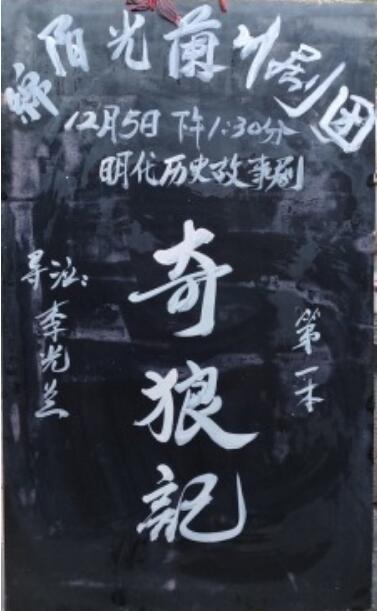 绵阳光蘭川剧团
12月5日下午1:30分
明代历史故事剧
第一本
奇狼記
导演：李光兰